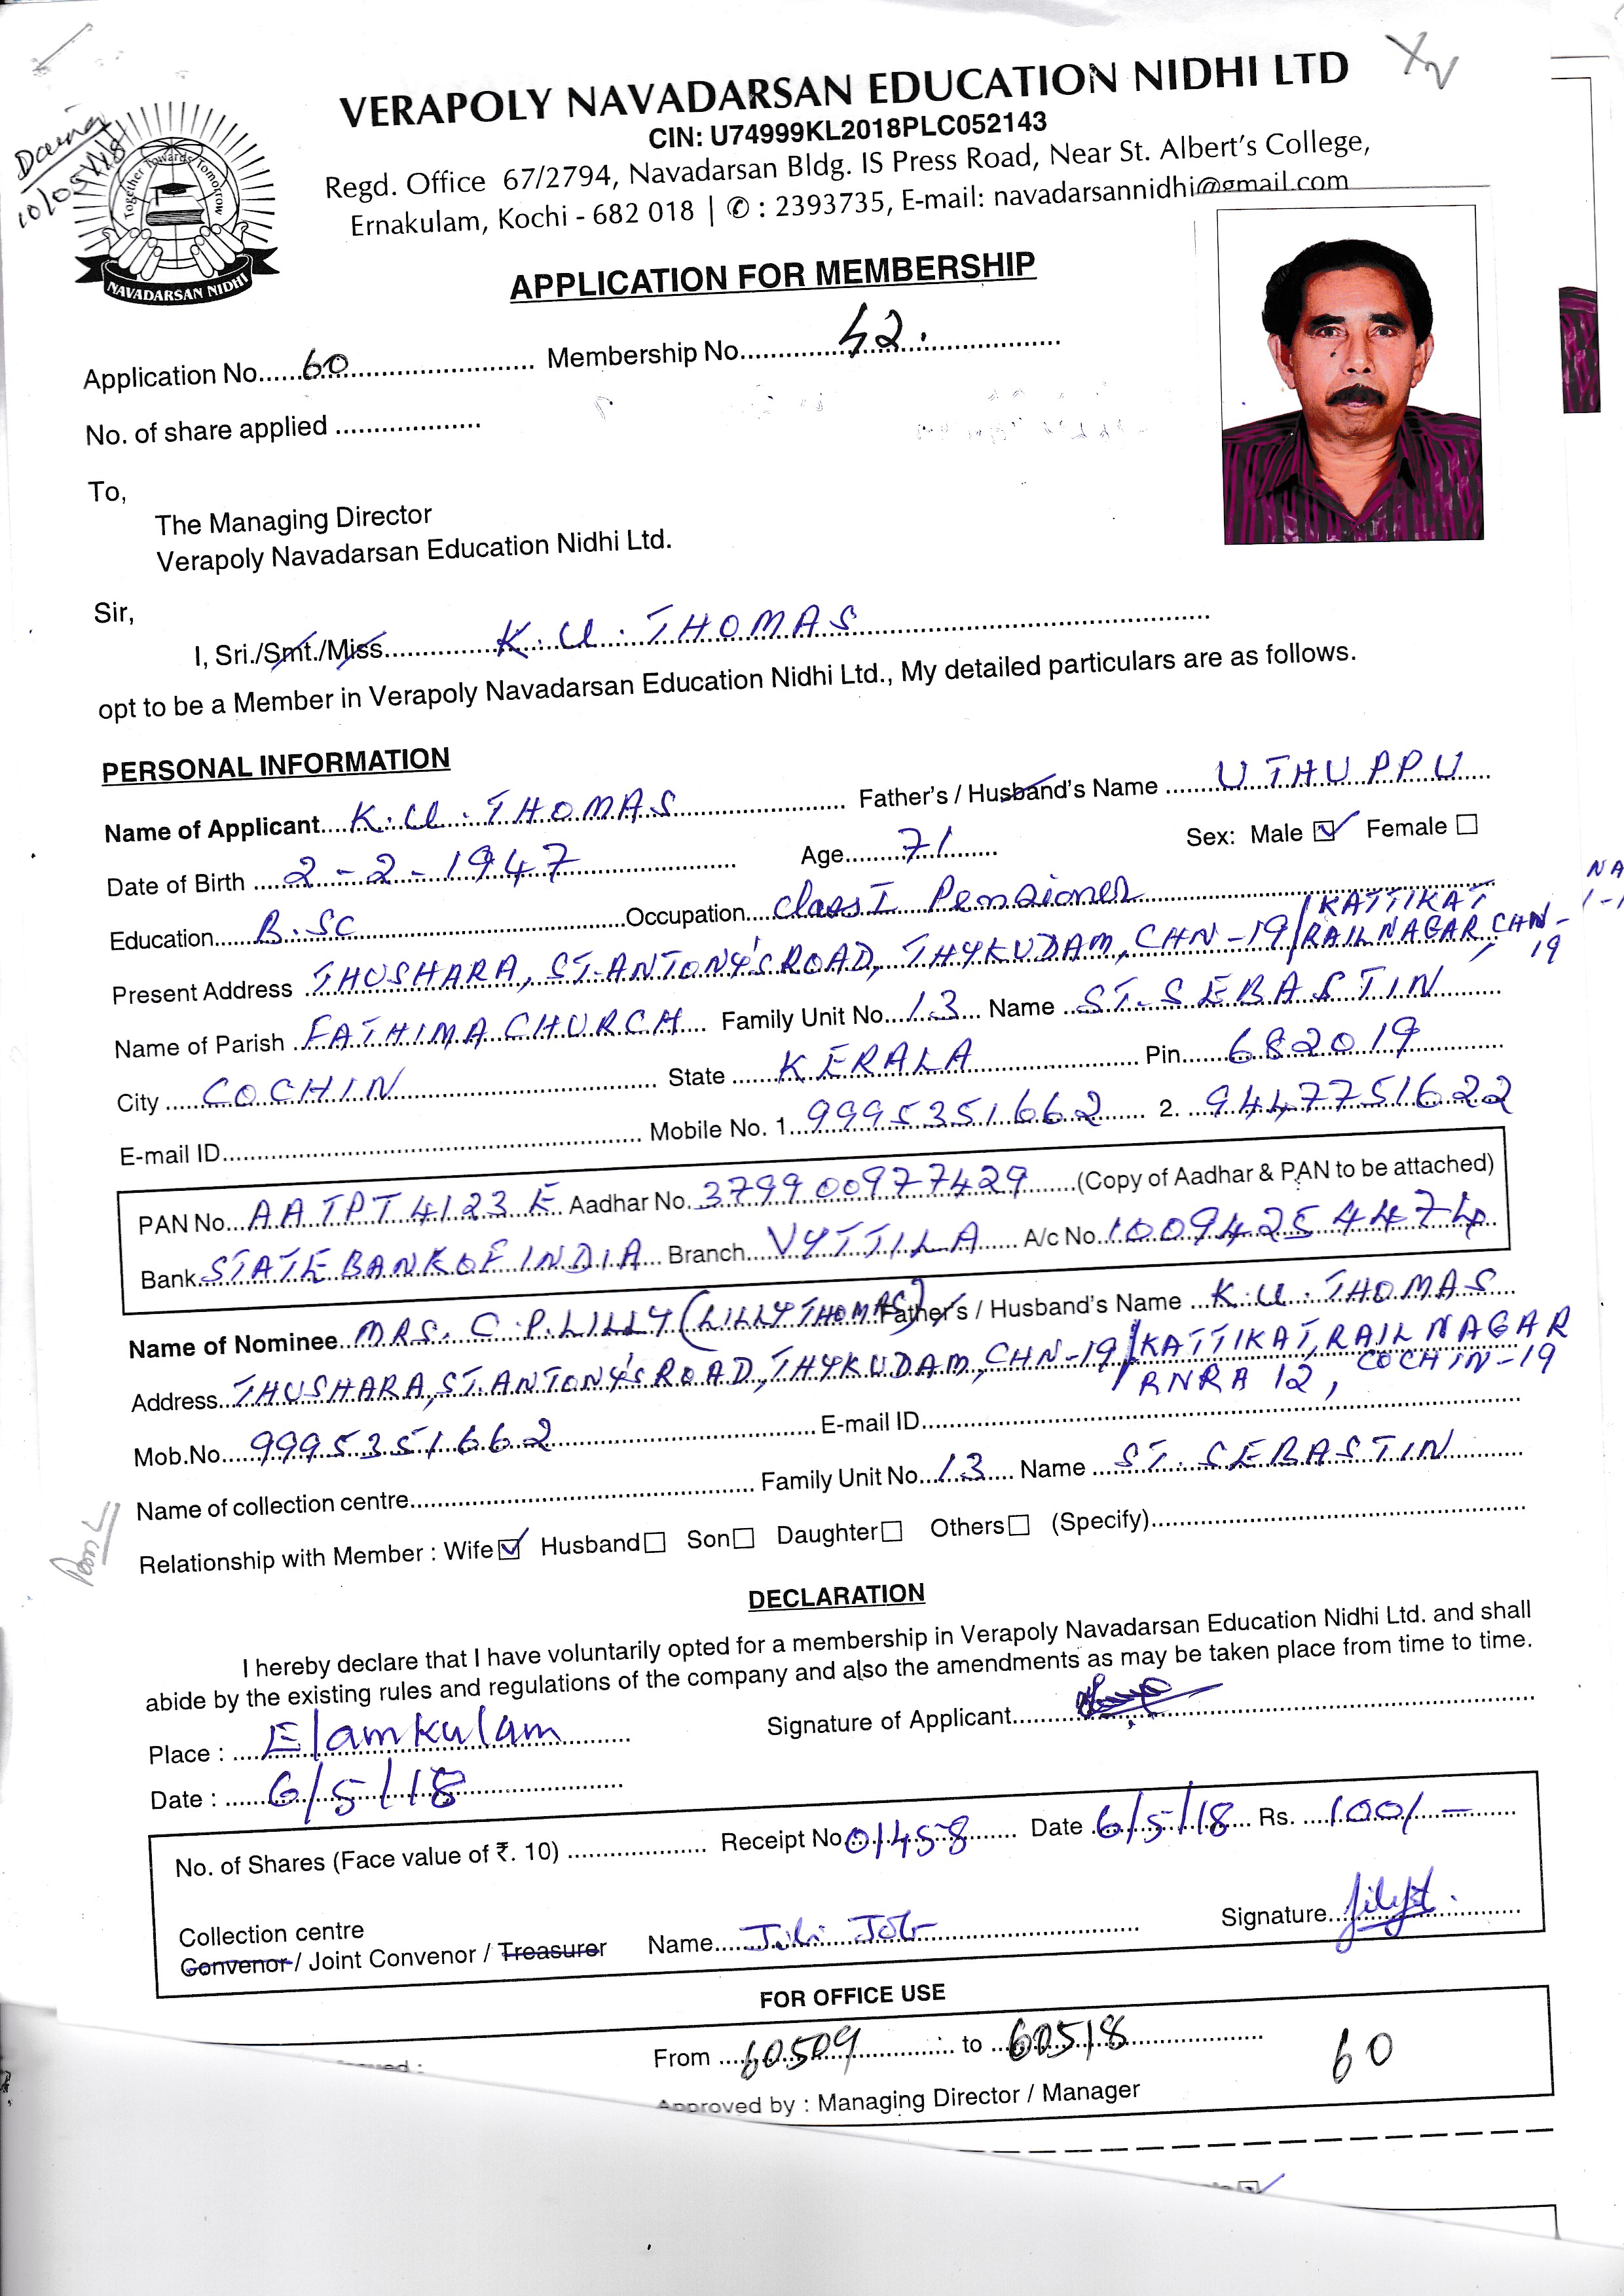 VERAPOLY NAVADARSAN EDUCATION NIDHI LTD
CIN: U74999KL2018PLC052143
Regd. Office 67/2794, Navadarsan Bldg. IS Press Road, Near St. Albert's College,
Ernakulam, Kochi - 682 018 | ✆ : 2393735, E-mail: navadarsannidhi@gmail.com
10/05/18
Together Towards Tomorrow
NAVADARSAN NIDHI
APPLICATION FOR MEMBERSHIP
Application No......60.............................. Membership No..............52...................
No. of share applied ...................
To,
The Managing Director
Verapoly Navadarsan Education Nidhi Ltd.
Sir,
I, Sri./Smt./Miss..............K.U. THOMAS..............................
opt to be a Member in Verapoly Navadarsan Education Nidhi Ltd., My detailed particulars are as follows.
PERSONAL INFORMATION
Name of Applicant....K.U. THOMAS.................... Father's / Husband's Name .......UTHUPPU....
Date of Birth ....2-2-1947.................... Age.........71......... Sex: Male ☑ Female ☐
Education......B.SC..............................Occupation....Class I Pensioner....................
Present Address THUSHARA, ST. ANTONY'S ROAD, THYKUDAM, CHN-19/KATTIKAT
RAIL NAGAR, CHN-
19
Name of Parish FATHIMA CHURCH.... Family Unit No...13... Name ..ST. SEBASTIN......
City .....COCHIN.............................. State ......KERALA.................... Pin......682019..........
E-mail ID........................................ Mobile No. 1..9995351662...... 2. ..9447751622
PAN No...AATPT4123E.. Aadhar No. 379900977429......(Copy of Aadhar & PAN to be attached)
Bank.STATE BANK OF INDIA... Branch...VYTTILA...... A/c No.10094254474..
Name of Nominee..MRS. C.P. LILLY (LILLY THOMAS) Father's / Husband's Name ...K.U. THOMAS...
Address..THUSHARA, ST. ANTONY'S ROAD, THYKUDAM, CHN-19/KATTIKAT, RAIL NAGAR
RNRA 12, COCHIN-19
Mob.No....9995351662..............................E-mail ID........................................
Name of collection centre.................................................. Family Unit No...13.... Name ....ST. SEBASTIN..........
Relationship with Member : Wife☑ Husband☐ Son☐ Daughter☐ Others☐ (Specify)........................................
DECLARATION
I hereby declare that I have voluntarily opted for a membership in Verapoly Navadarsan Education Nidhi Ltd. and shall
abide by the existing rules and regulations of the company and also the amendments as may be taken place from time to time.
Place : ....Elamkulam.......... Signature of Applicant..................................................
Date : ......6/5/18....................
No. of Shares (Face value of ₹. 10) .................... Receipt No.01458....... Date .6/5/18... Rs. ...100/-..........
Collection centre
Convenor / Joint Convenor / Treasurer Name.....Job.............................. Signature....................
FOR OFFICE USE
From ...60509.............. to ...60518.................... 60
Approved by : Managing Director / Manager